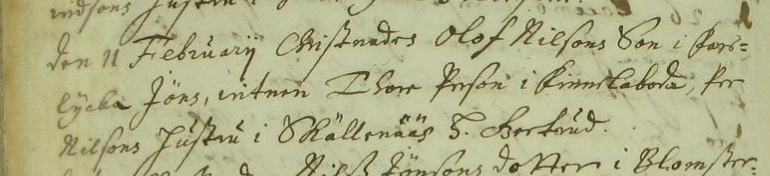 Hustru i
den 11 Februarij Christnades Olof Nilsons Son i Kars=
lycka Jöns, witnen Thore Person i Kinnelaboda, Per
Nilsons Hustru i Skällenääs H. Gertrud.
Nilß Jönsons dotter i Blomster=